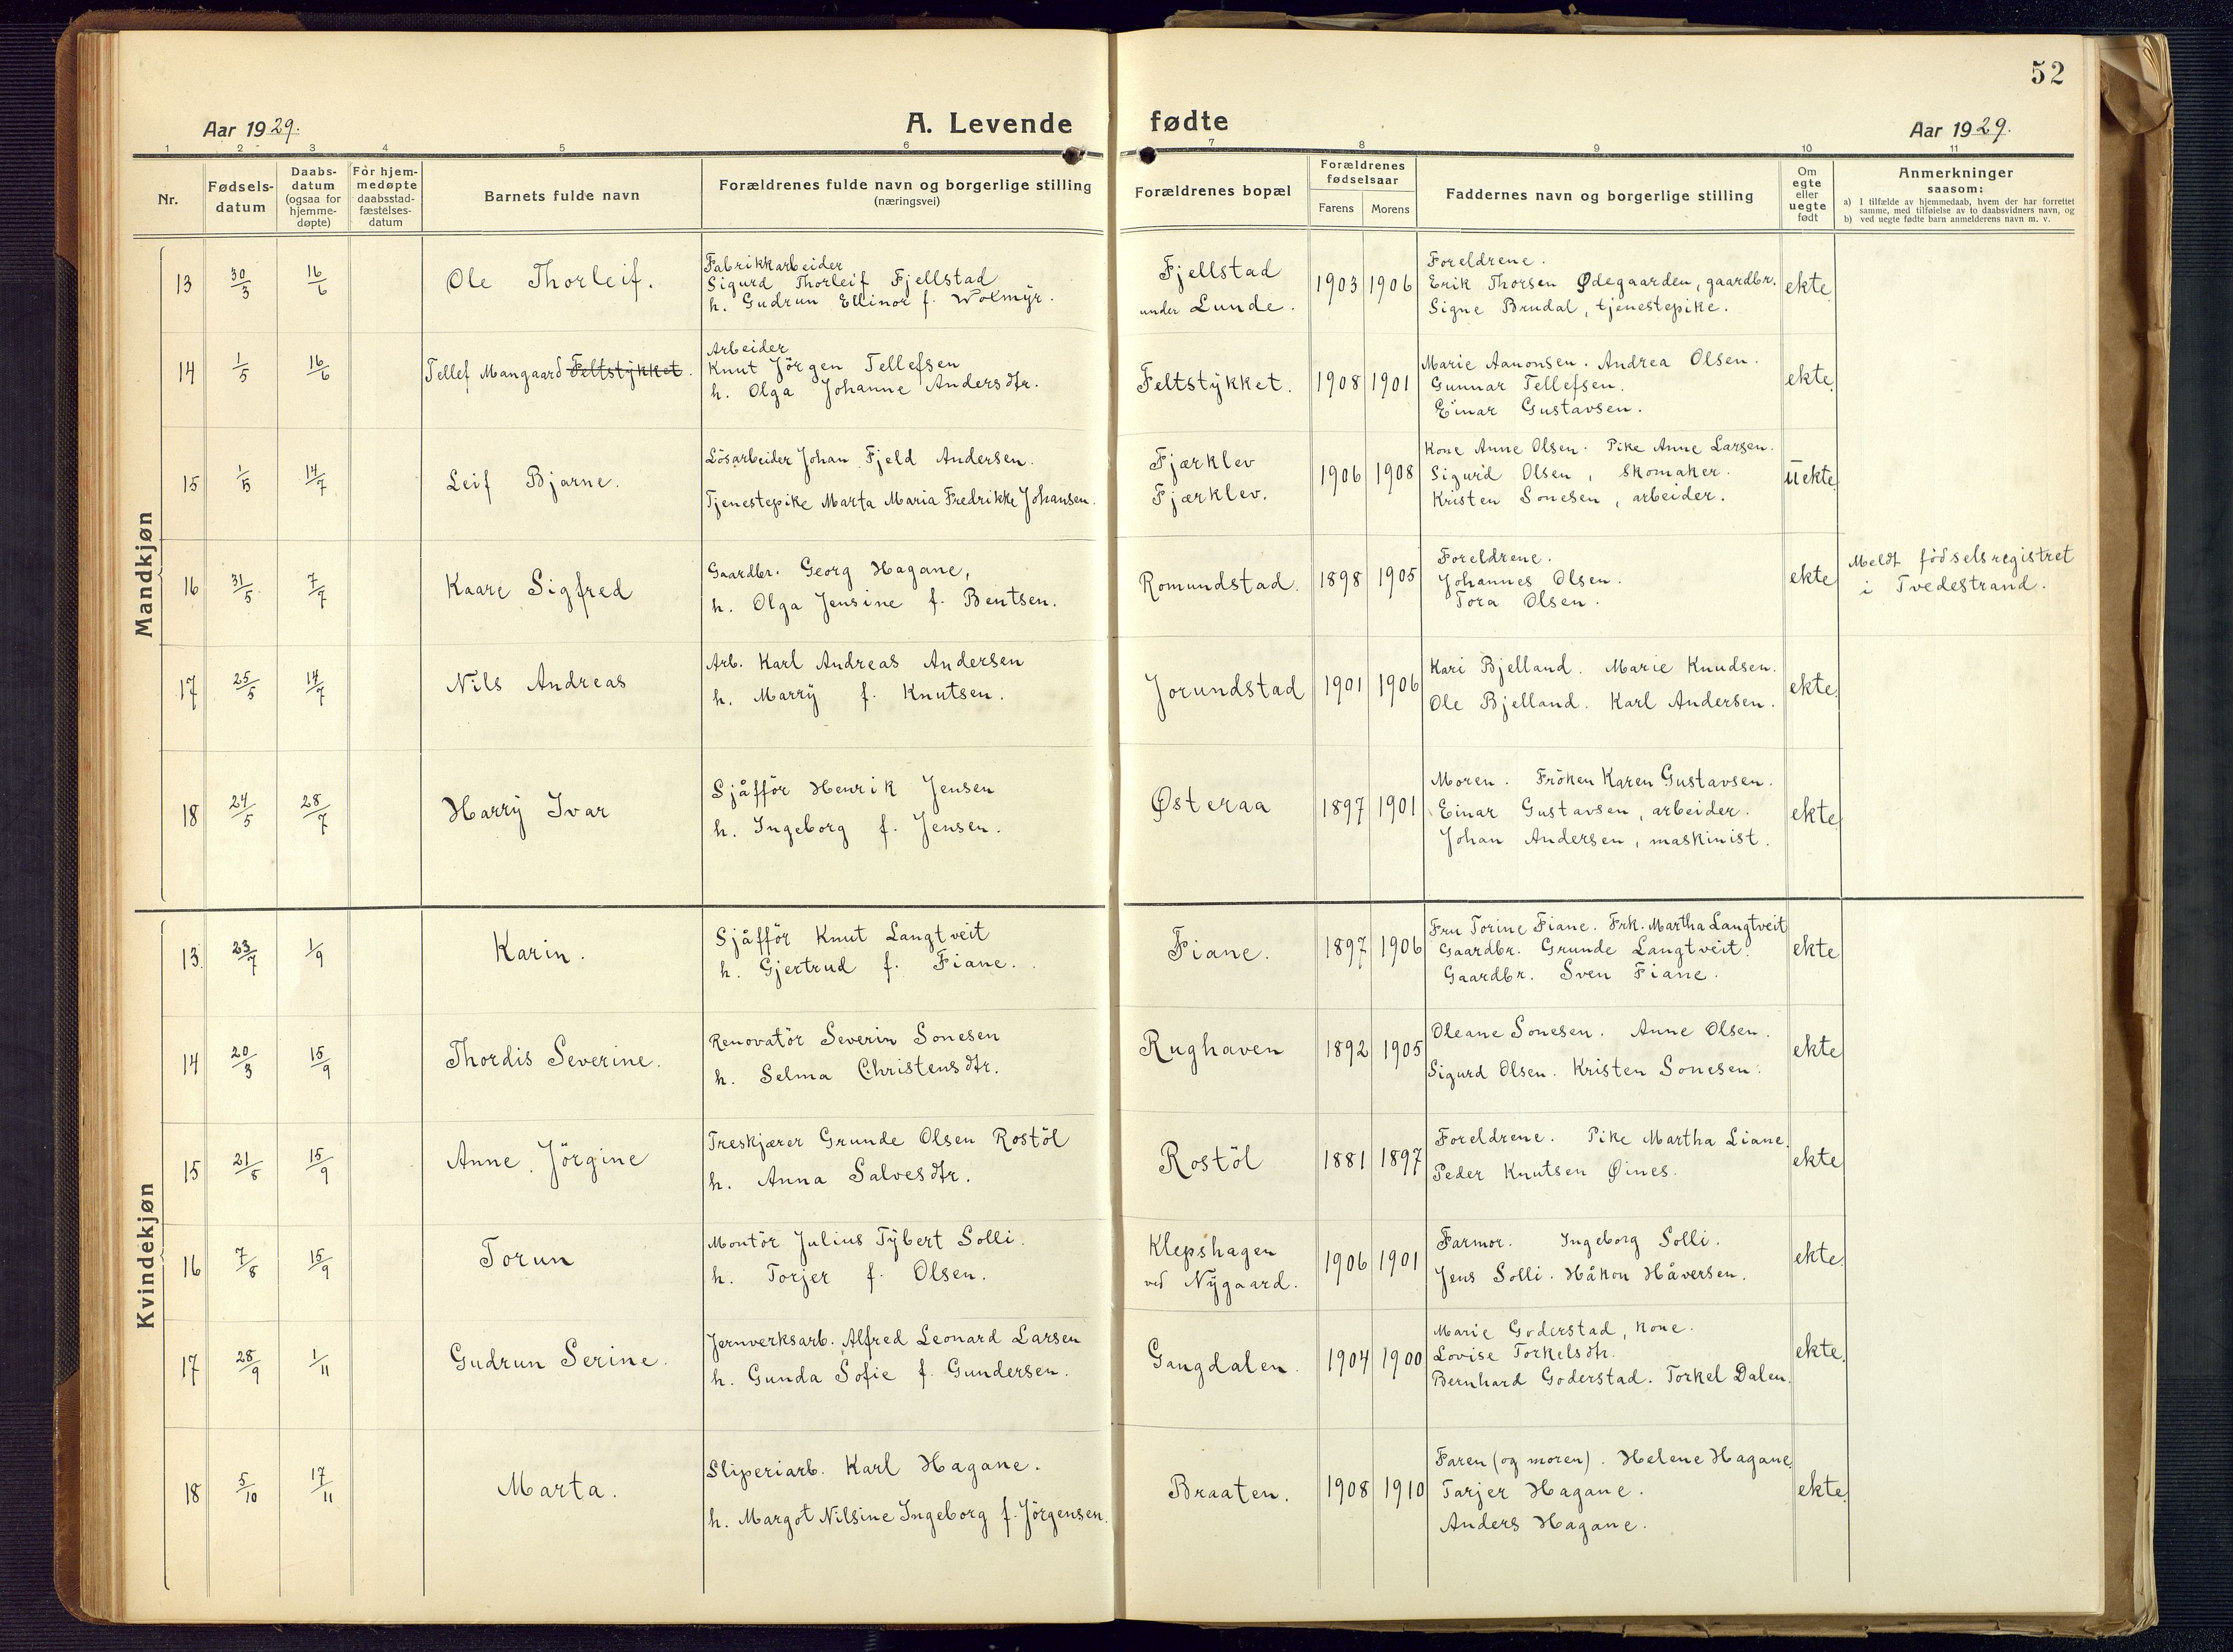 52
Aar 1929.
A. Levende fødte
Aar 1929.
1 2 3 4 5 6 7 8 9 10 11
Nr.
Fødsels-
datum
Daabs-
datum
(ogsaa for
hjemme-
døpte)
For hjem-
medøpte
daabsstad-
fæstelses-
datum
Barnets fulde navn
Forældrenes fulde navn og borgerlige stilling
(næringsvei)
Forældrenes bopæl
Forældrenes
fødselsaar
Farens Morens
Faddernes navn og borgerlige stilling
Om
egte
eller
uegte
født
Anmerkninger
saasom:
a) I tilfælde av hjemmedaab, hvem der har forrettet
samme, med tilføielse av to daabsvidners navn, og
b) ved uegte fødte barn anmelderens navn m. v.
Mandkjøn
13 30/3 16/6 Ole Thorleif.
Fabrikkarbeider
Sigurd Thorleif Fjellstad
h. Gudrun Ellinor f. Wolmyr.
Fjellstad
under Lunde.
1903 1906
Foreldrene.
Erik Thorsen Ødegaarden, gaardbr.
Signe Brudal, tjenestepike.
ekte
14 1/5 16/6 Tellef Mangaard Feltstykket.
Arbeider
Knut Jörgen Tellefsen
h. Olga Johanne Andersdtr.
Feltstykket.
1908 1901
Marie Aanonsen. Andrea Olsen.
Gunnar Tellefsen.
Einar Gustavsen.
ekte.
15 1/5 14/7 Leif Bjarne.
Lösarbeider Johan Fjeld Andersen.
Tjenestepike Marta Maria Fredrikke Johansen.
Fjærklev
Fjærklev.
1906 1908
Kone Anne Olsen. Pike Anne Larsen.
Sigurd Olsen, skomaker.
Kristen Sonesen, arbeider.
uekte
16 31/5 7/7 Kaare Sigfred
Gaardbr. Georg Hagane,
h. Olga Jensine f. Bentsen.
Romundstad.
1898 1905
Foreldrene.
Johannes Olsen.
Tora Olsen.
ekte
Meldt födselsregistret
i Tvedestrand.
17 25/5 14/7 Nils Andreas
Arb. Karl Andreas Andersen
h. Marry f. Knutsen.
Jorundstad
1901 1906
Kari Bjelland. Marie Knudsen.
Ole Bjelland. Karl Andersen.
ekte.
18 24/5 28/7 Harry Ivar
Sjåfför Henrik Jensen
h. Ingeborg f. Jensen.
Østeraa
1897 1901
Moren. Fröken Karen Gustavsen.
Einar Gustavsen, arbeider.
Johan Andersen, maskinist.
ekte
Kvindekjøn
13. 23/7 1/9 Karin.
Sjåfför Knut Langtveit
h. Gjertrud f. Fiane.
Fiane.
1897 1906
Fru Torine Fiane. Frk. Martha Langtveit
Gaardbr. Grunde Langtveit.
Gaardbr. Sven Fiane.
ekte
14 20/3 15/9 Thordis Severine.
Renovatör Severin Sonesen
h. Selma Christensdtr.
Rughaven
1892 1905
Oleane Sonesen. Anne Olsen.
Sigurd Olsen. Kristen Sonesen.
ekte
15 21/8 15/9 Anne Jörgine
Treskjærer Grunde Olsen Rostöl
h. Anna Salvesdtr.
Rostöl
1881 1897
Foreldrene. Pike Martha Liane.
Peder Knutsen Øines.
ekte
16 7/8 15/9 Torun
Montör Julius Tybert Solli.
h. Torjer f. Olsen.
Klepshagen
ved Nygaard.
1906 1901
Farmor. Ingeborg Solli.
Jens Solli. Håkon Håversen.
ekte
17 28/9 1/11 Gudrun Serine.
Jernverksarb. Alfred Leonard Larsen
h. Gunda Sofie f. Gundersen.
Gangdalen.
1904 1900
Marie Goderstad, kone.
Lovise Torkelsdtr.
Bernhard Goderstad. Torkel Dalen.
ekte.
18 5/10 17/11 Marta.
Sliperiarb. Karl Hagane.
h. Margot Nilsine Ingeborg f. Jörgensen.
Braaten.
1908 1910
Faren (og moren). Helene Hagane.
Tarjer Hagane.
Anders Hagane.
ekte.